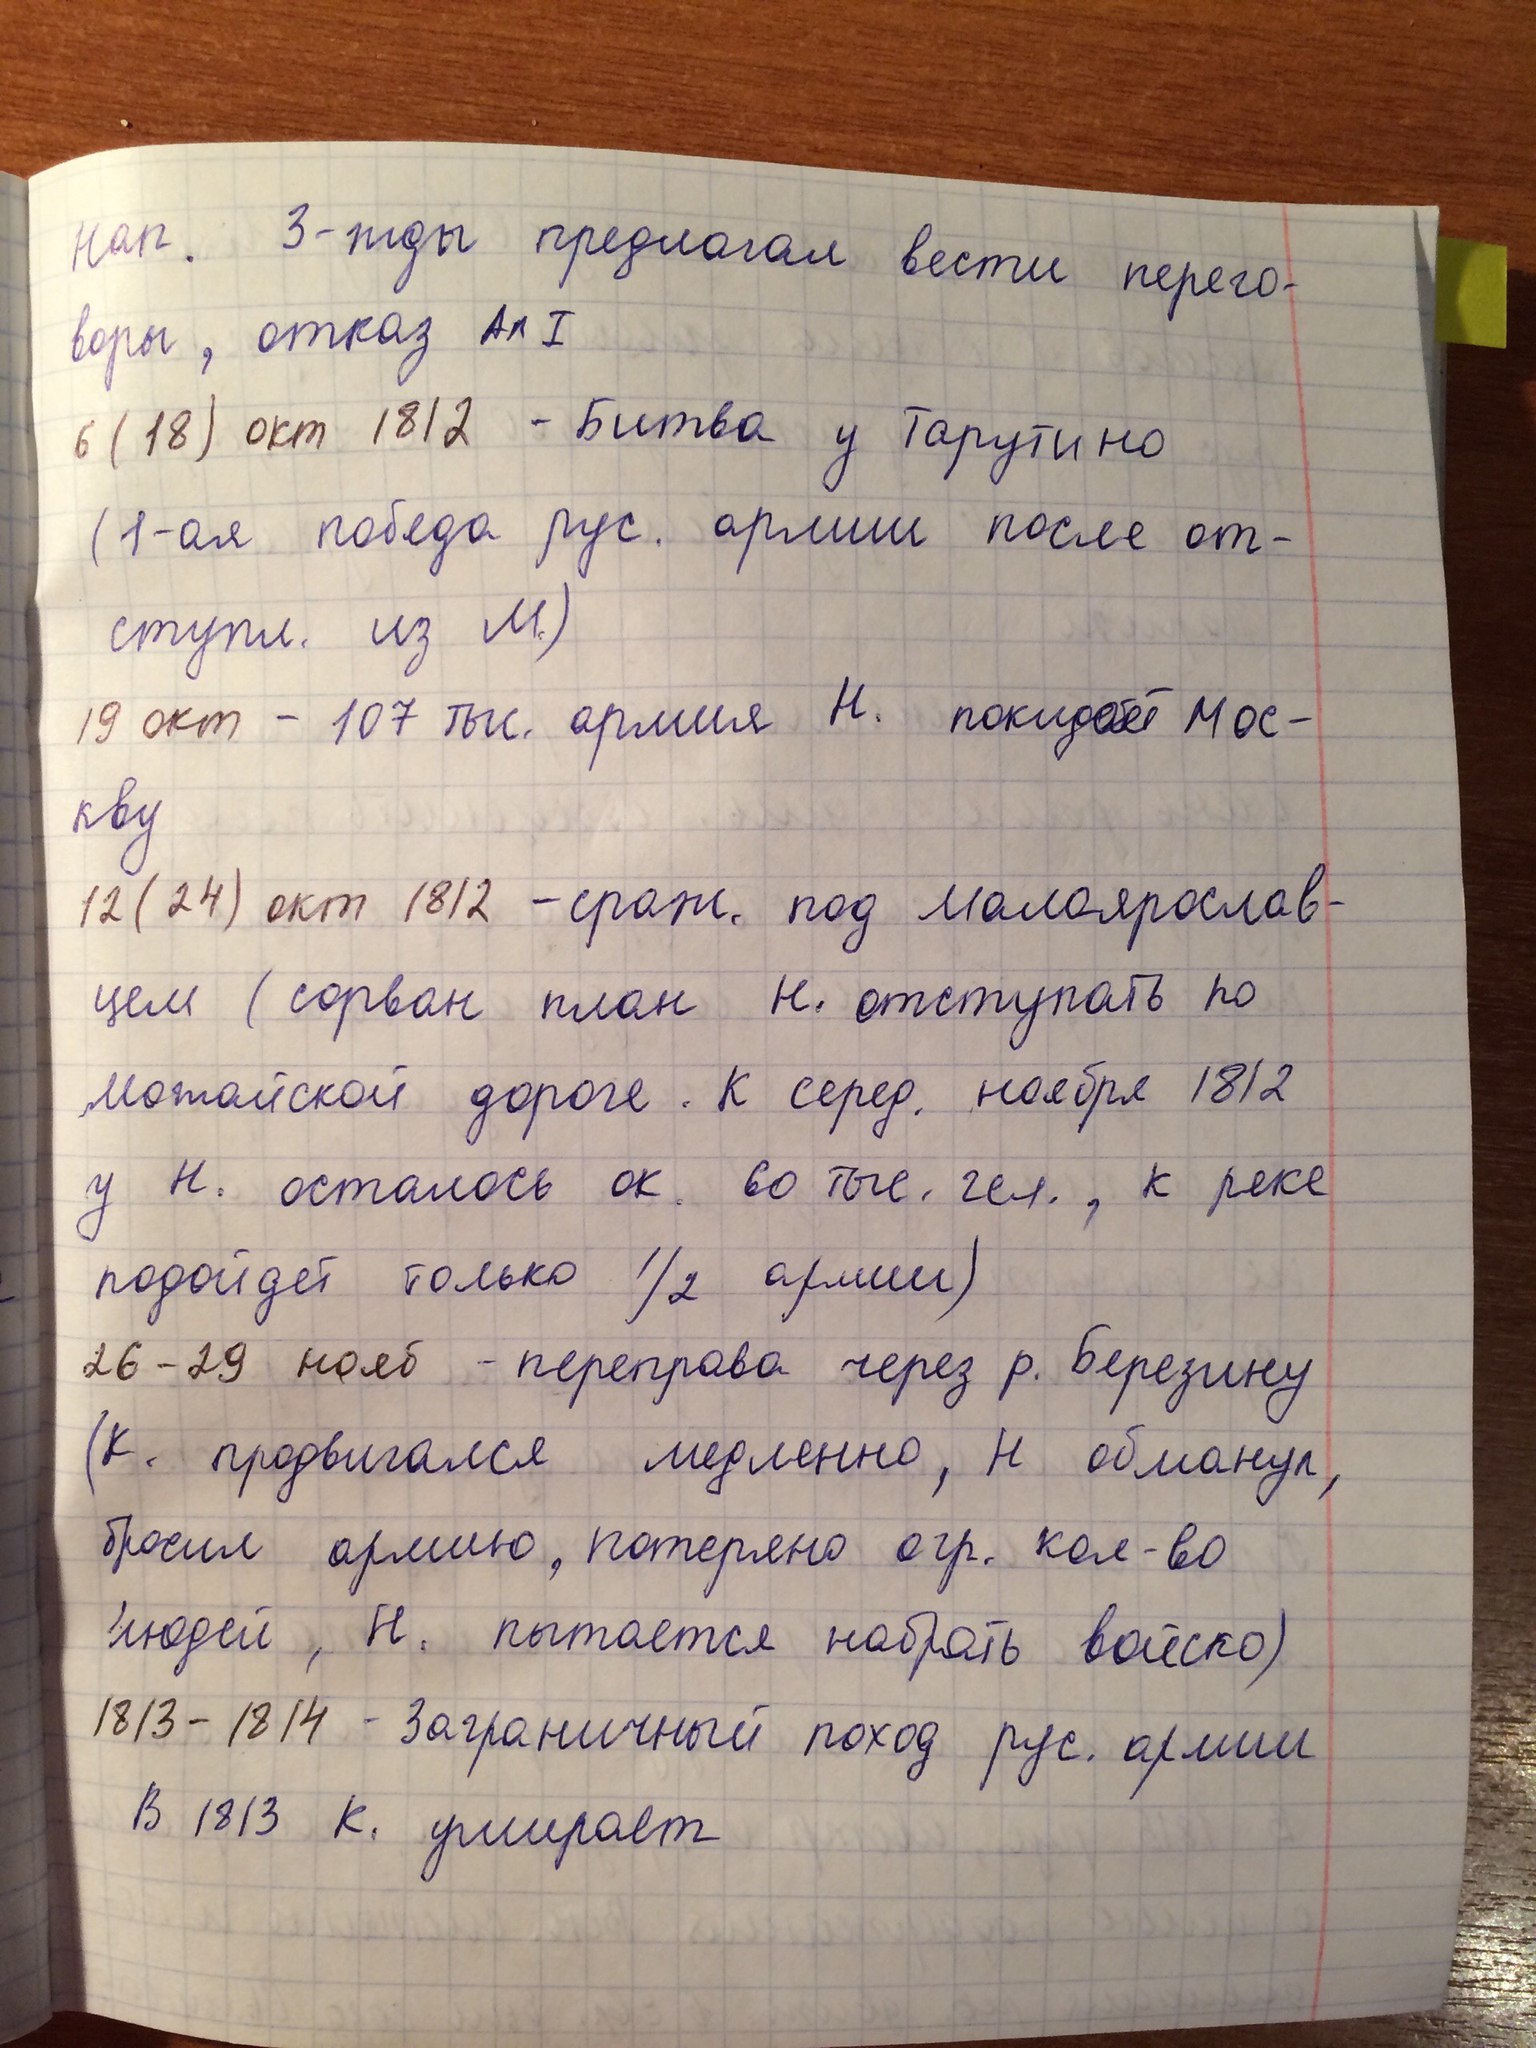 Нап. 3-жды предлагал вести перего-
воры, отказ Ал I
6(18) окт 1812 - Битва у Тарутино
(1-ая победа рус. армии после от-
ступл. из М.)
19 окт - 107 тыс. армия Н. покидает Мос-
кву
12(24) окт 1812 - сраж. под Малоярослав-
цем (сорван план Н. отступать по
Можайской дороге. К серед. ноября 1812
у Н. осталось ок. 60 тыс. чел., к реке
подойдет только 1/2 армии)
26-29 нояб - переправа через р. Березину
(К. продвигался медленно, Н обманул,
бросил армию, потеряно огр. кол-во
людей, Н. пытается набрать войско)
1813-1814 - Заграничный поход рус. армии
В 1813 К. умирает